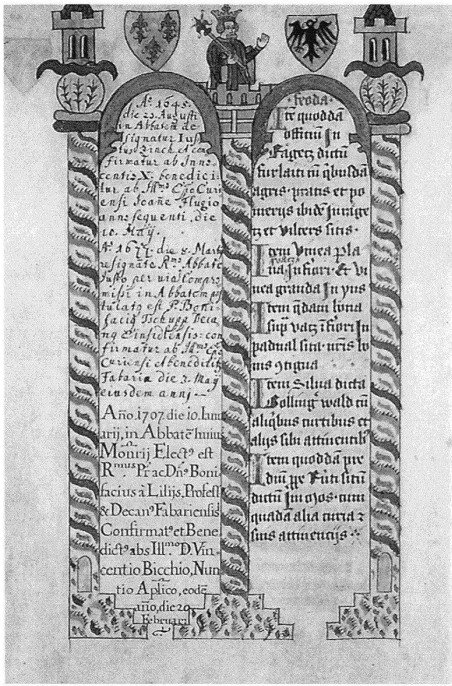 Aº 1645.
die 23. Augusti
in Abbatem de
signatur Ius
tus Zinck et con
firmatur ab Inno
centio X. benedici
tur ab Ill.mo Epo Curi
ensi Joañe Flugio
anno sequenti die
10. May.
Aº 1677 die 8. Marty
resignāte R.mo Abbate
Justo per via Compro
missi in Abbatem pos
tulatg est P. Boni
facig Tschupp Deca
ng Einsidlensis: con
firmatur ab Ill.mo Epo
Curiensi et benedicitur
Fabariæ die 3. May
eiusdem anni
Año 1707. die 10. Janu
arij, in Abbatē huius
Monrij Elect9 est
R.mus P.r ac Dñ9 Boni
facius à Lilijs, Profess9
& Decan9 Fabariensis
Confirmat9 et Bene
dict9 abs Ill.mo D. Vin
centio Bicchio, Nun
tio Aplico, eodē
año, die 20
Februari
feoda
Itē quoddā
officiū In
Ragetz dictū
furlaiti cū qbusdā
agris pratis et po
merijs ibidē In rige
tz et vilters sitis
Item Vinea Pla
In fiori & vi
nea granda In yns
Item qdam bona
In
padual sita
9tigua
Item Silua dicta
wald cū
aliqbus curtibus et
alijs sibi attinentib9
Item quoddam pre
diū Rūti sitū
dictū In Mos cum
quadā alia curia et
suis attinencijs